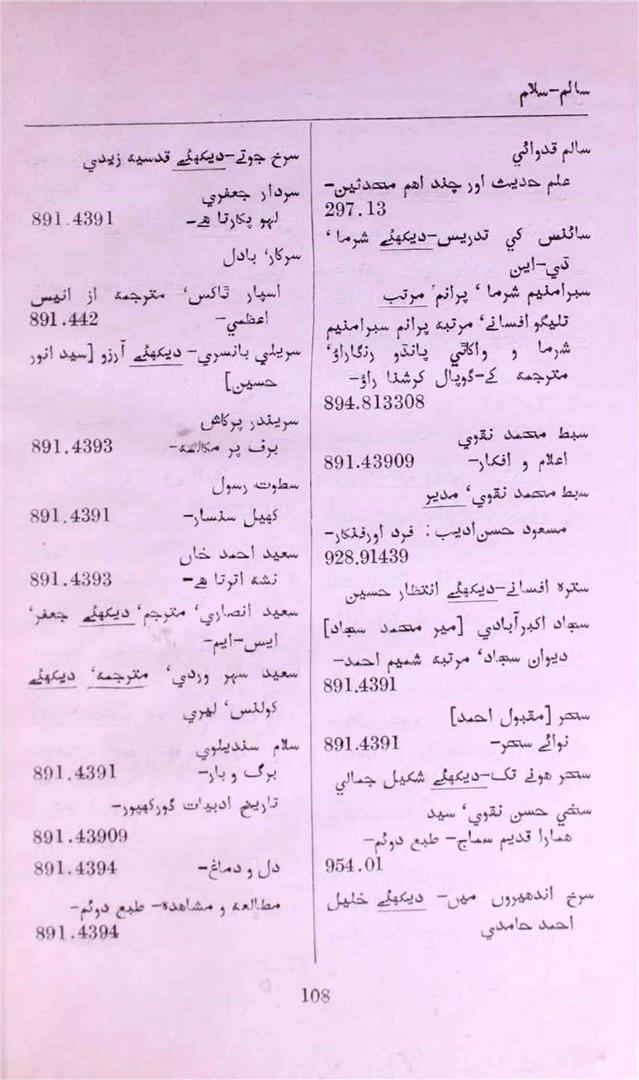 سالم-سلام
سالم قدوائي
علم حدیث اور چند اهم محدثین-
297.13
سائنس کي تدریس-دیکھئے شرما،
ڈي-این
سبرامنیم شرما ، پرانم، مرتب
تلیگو افسانے، مرتبه پرانم سبرامنیم
شرما و واکاٹي پانڈو رنگاراؤ،
مترجمه کے-گوپال کرشنا راؤ-
894.813308
سبط محمد نقوي
اعلام و افکار- 891.43909
سبط محمد نقوي، مدیر
مسعود حسن ادیب: فرد اورفنکار-
928.91439
ستره افسانے-دیکھئے انتظار حسین
سجاد اکبرآبادي [میر محمد سجاد]
دیوان سجاد، مرتبه شمیم احمد-
891.4391
سحر [مقبول احمد]
نوائے سحر- 891.4391
سحر هونے تک-دیکھئے شکیل جمالي
سخي حسن نقوي، سید
همارا قدیم سماج- طبع دوئم-
954.01
سرخ اندهیروں میں- دیکھئے خلیل
احمد حامدي
سرخ جوتے-دیکھئے قدسیه زیدي
سردار جعفري
لهو پکارتا هے- 891.4391
سرکار، بادل
اسپار ٹاکس، مترجمه از انیس
اعظمي- 891.442
سریلي بانسري- دیکھئے آرزو [سید انور
حسین]
سریندر پرکاش
برف پر مکالمه- 891.4393
سطوت رسول
کھیل سنسار- 891.4391
سعید احمد خاں
نشه اترتا هے- 891.4393
سعید انصاري، مترجم، دیکھئے جعفر،
ایس-ایم-
سعید سهر وردي، مترجمه، دیکھئے
کولنس، لیري
سلام سندیلوي
برگ و بار- 891.4391
تاریخ ادبیات گورکھپور-
891.43909
دل و دماغ- 891.4394
مطالعه و مشاهده- طبع دوئم-
891.4394
108